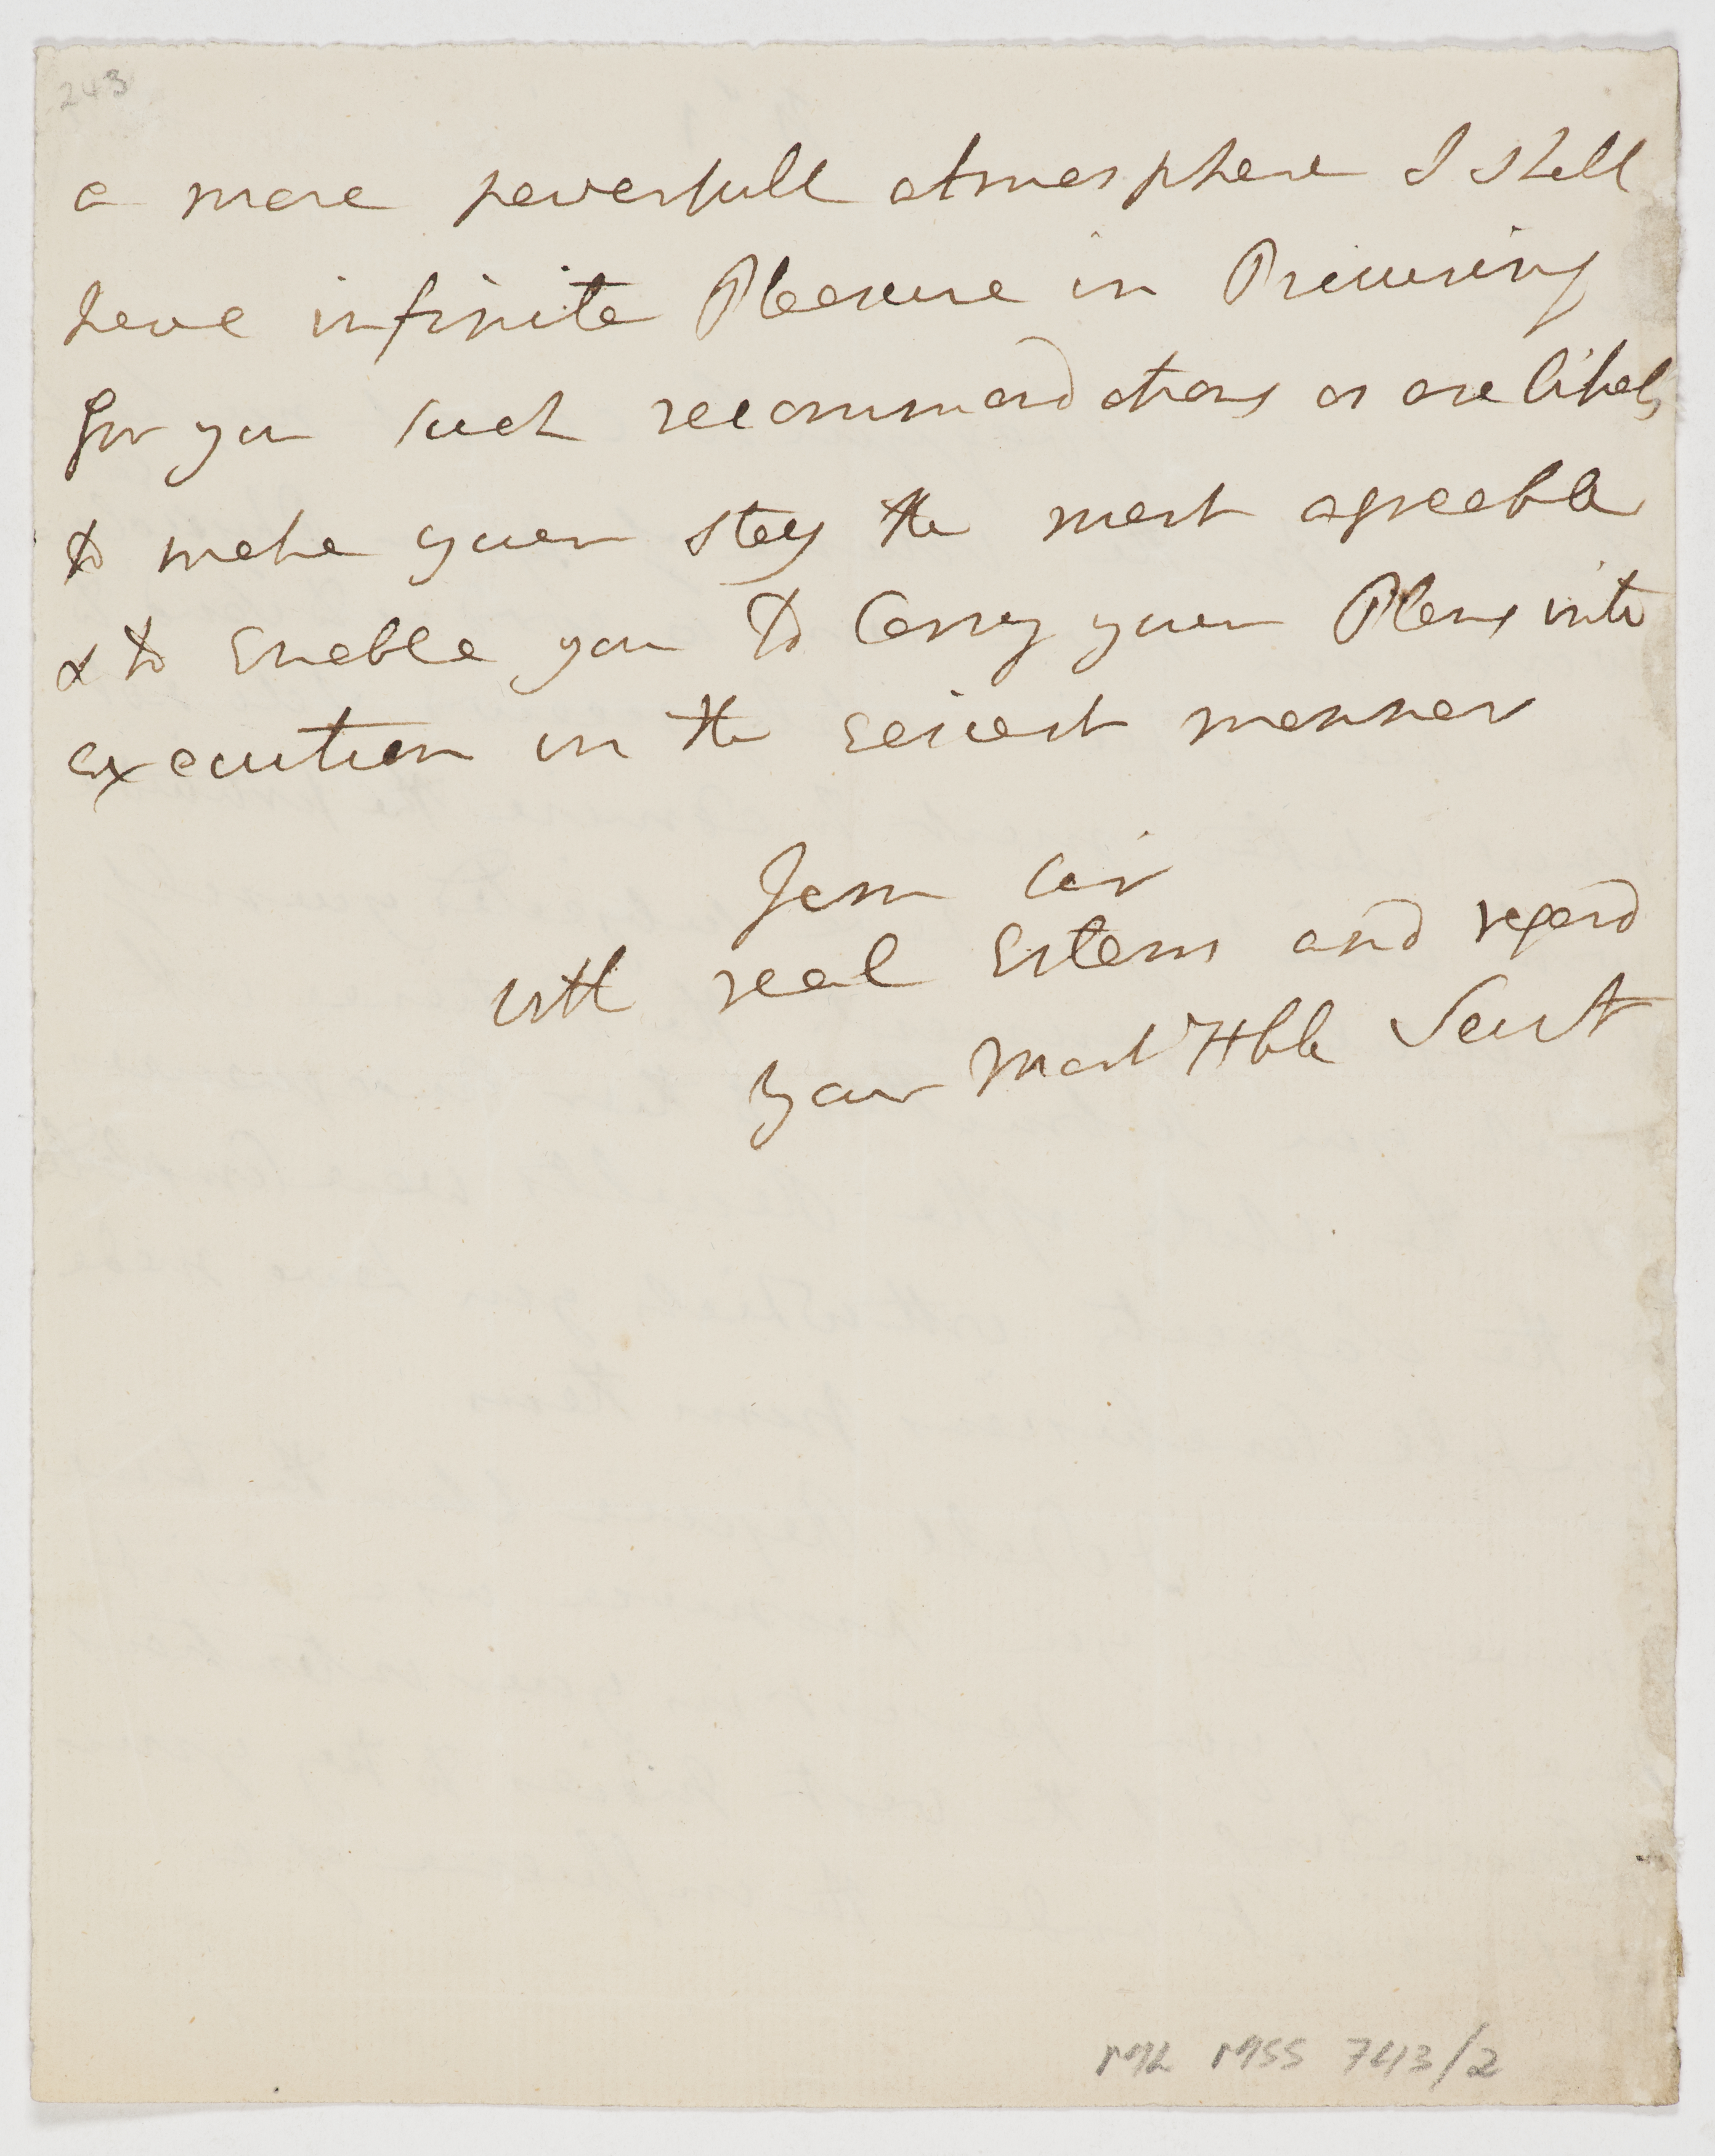 243
a more powerfull atmosphere I shall
have infinite Pleasure in Procuring
for you such recommendations as are likely
to make your stay the most agreeable
& to Enable you to Carry your Plans into
execution in the Eeisest manner
I am Sir
with real Esteem and regard
your Most Hble Servt
ML MSS 743/2